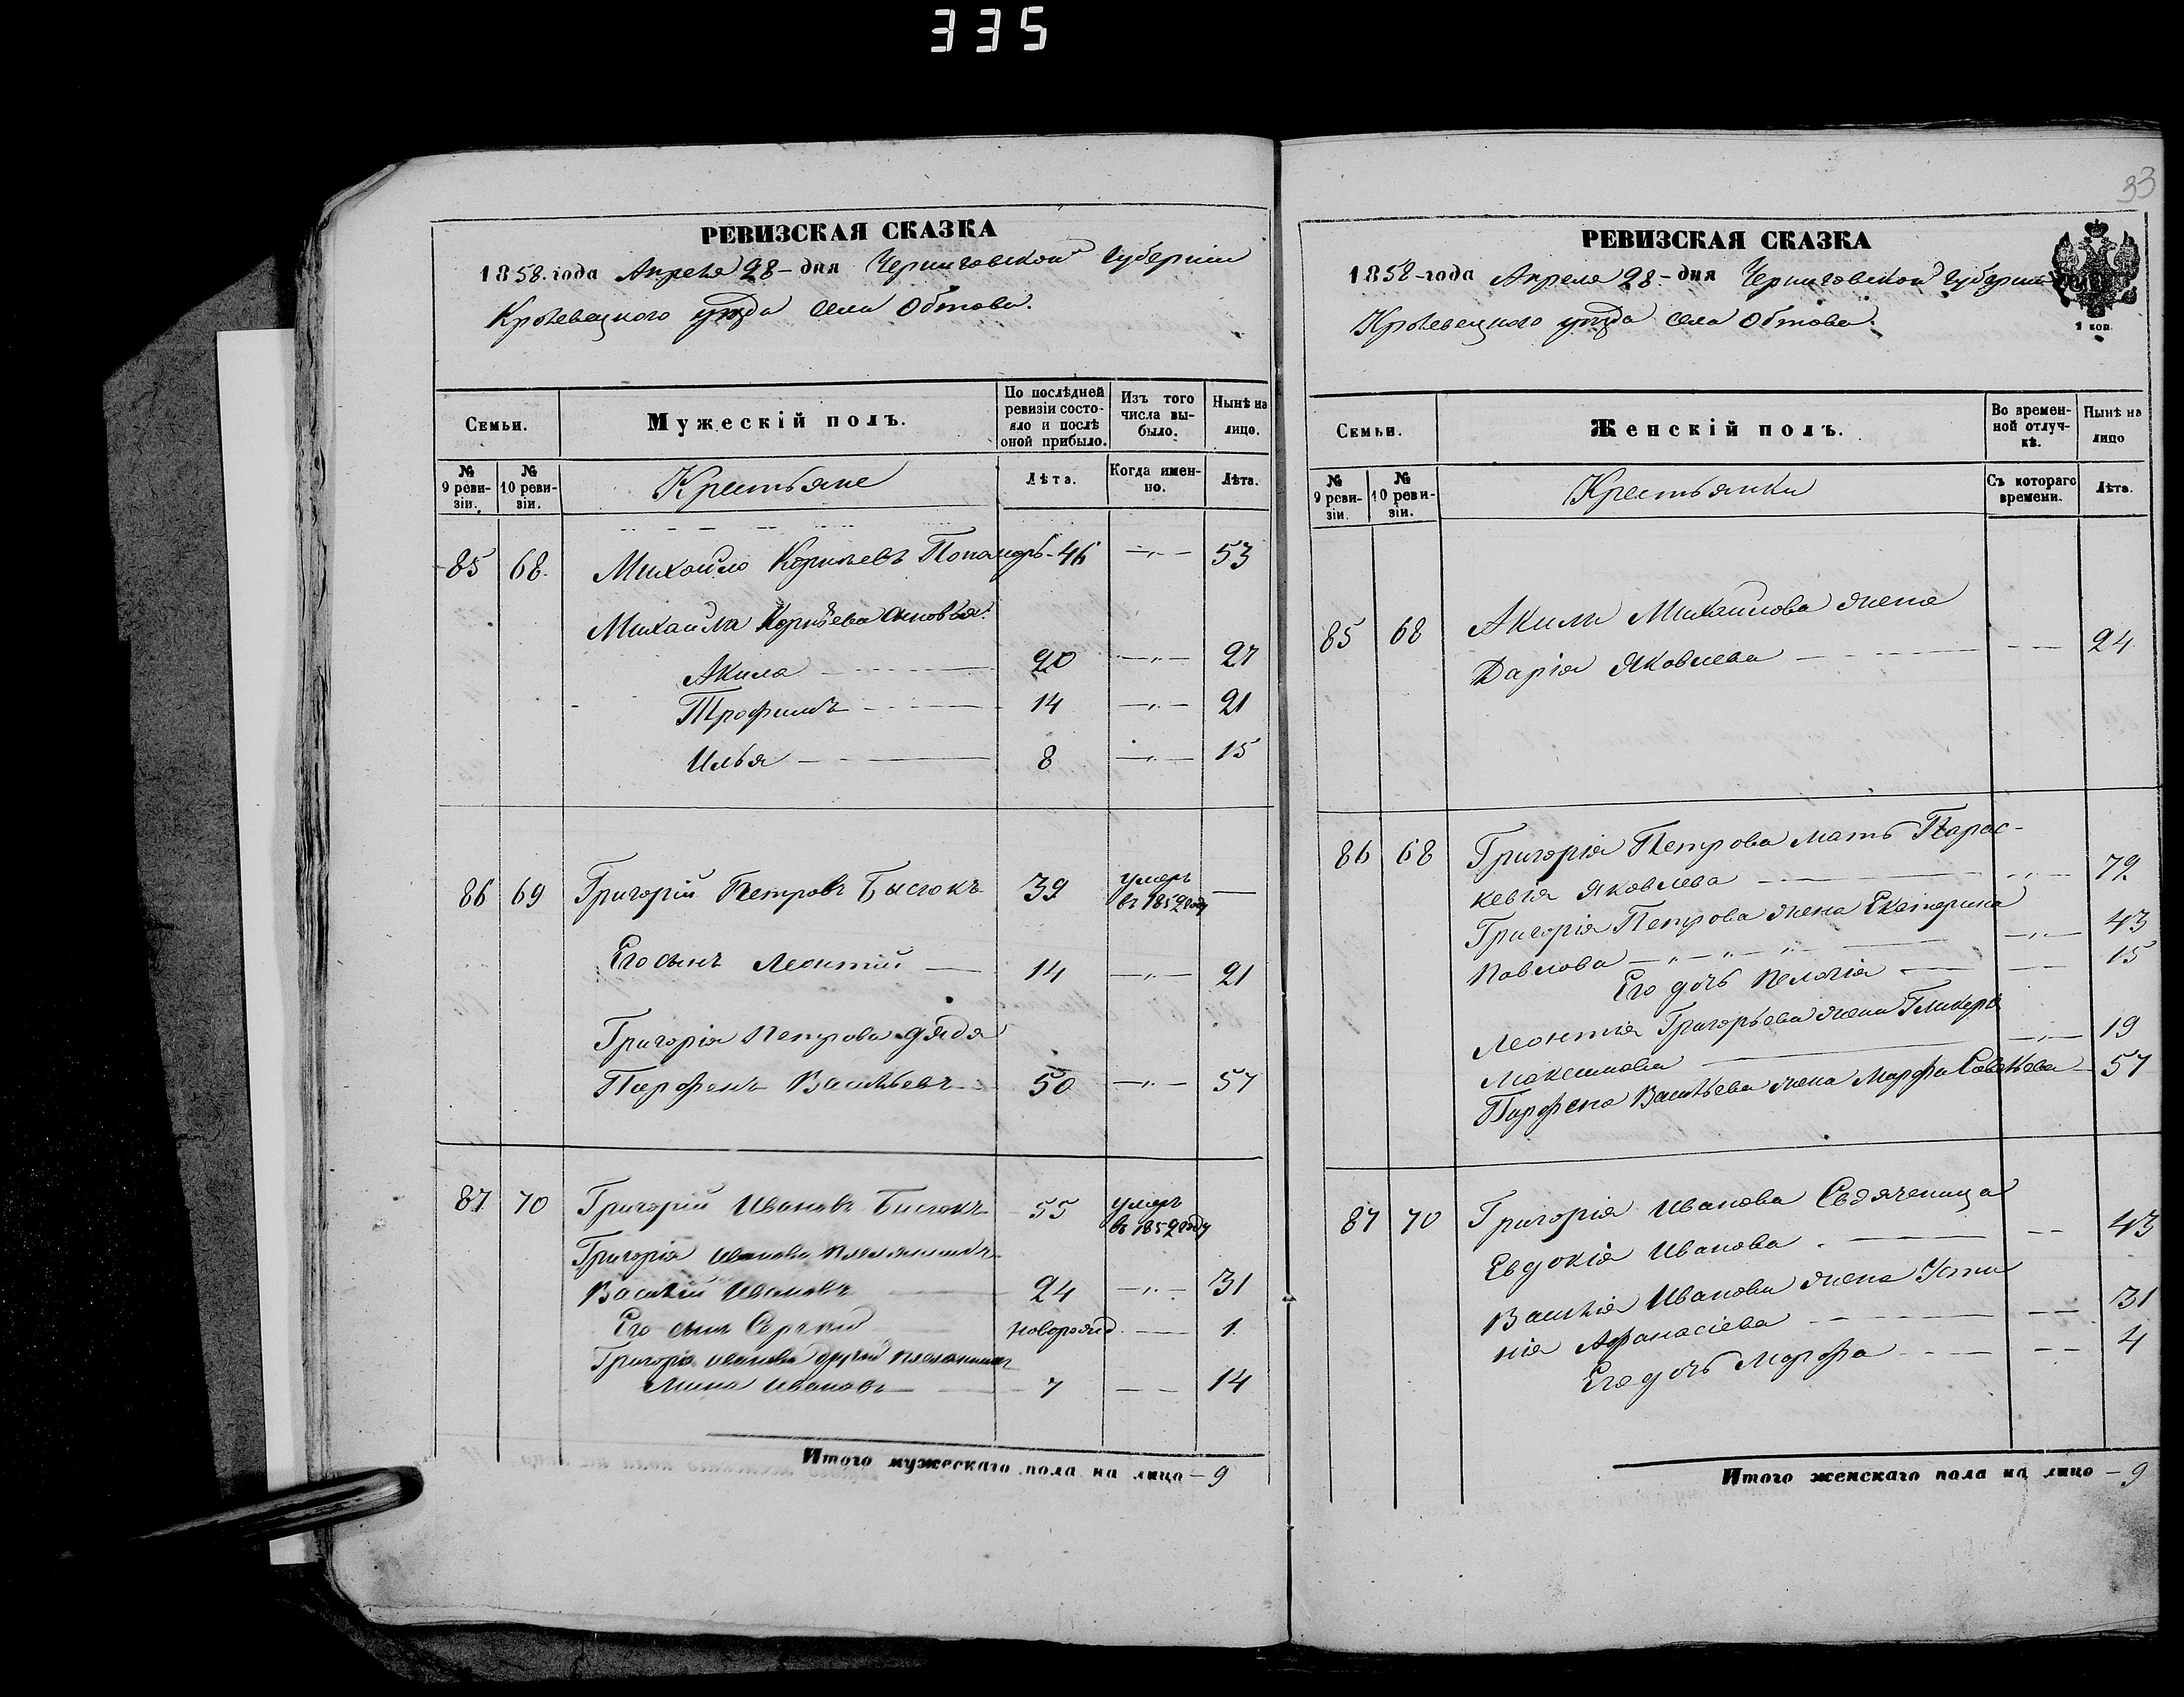 335
33
РЕВИЗСКАЯ СКАЗКА
1858. года Апреля 28 - дня Черниговской Губернии
Кролевецкого уѣзда села Обтова.
Семьи.
Мужескій полъ.
По послѣдней ревизіи состояло и послѣ оной прибыло.
Изъ того числа выбыло.
Нынѣ на лицо.
№ 9 ревизіи.
№ 10 ревизіи.
Крестьяне
Лѣта.
Когда именно.
Лѣта.
85 68. Михайло Корнѣевъ - 46 —„— 53
Михайла Корнѣева сыновья:
Акила — 20 —„— 27
Трофимъ — 14 —„— 21
Илья — 8 —„— 15
86 69 Григорій Петровъ Бысюкъ 39 умеръ в 1852 году —
Его сынъ Леонтій — 14 —„— 21
Григорія Петрова дядя
Парфенъ Васильевъ 50 —„— 57
87 70 Григорій Ивановъ Бысюкъ 55 умеръ в 1852 году
Григорія Иванова племянникъ
Василій Ивановъ — 24 —„— 31
Его сынъ Сергій новорожд. — 1.
Григорія Иванова другой племянник
Мина Ивановъ — 7 — — 14
Итого мужескаго пола на лицо - 9
РЕВИЗСКАЯ СКАЗКА
1858 - года Апреля 28. - дня Черниговской Губернии
Кролевецкого уѣзда села Обтова.
1 коп.
Семьи.
Женскій полъ.
Во временной отлучкѣ.
Нынѣ на лицо
№ 9 ревизіи.
№ 10 ревизіи.
Крестьянки
Съ котораго времени.
Лѣта.
85 68 Акилы Михайлова жена
Дарія Яковлева — — — 24
86 68 Григорія Петрова мать Парас-
кевія Яковлева — 72
Григорія Петрова жена Екатерина
Павлова —„—„—„— —„— 43
Его дочь Пелагія — — 15
Леонтія Григорьева жена Гликерія
Максимова — —„— 19
Парфена Васильева жена Марфа Савельева - 57
87 70 Григорія Иванова
Евдокія Иванова. — — 43
Василія Иванова жена Усти
нія Афанасіева — — 31
Его дочь Марфа — — 4
Итого женскаго пола на лицо - 9